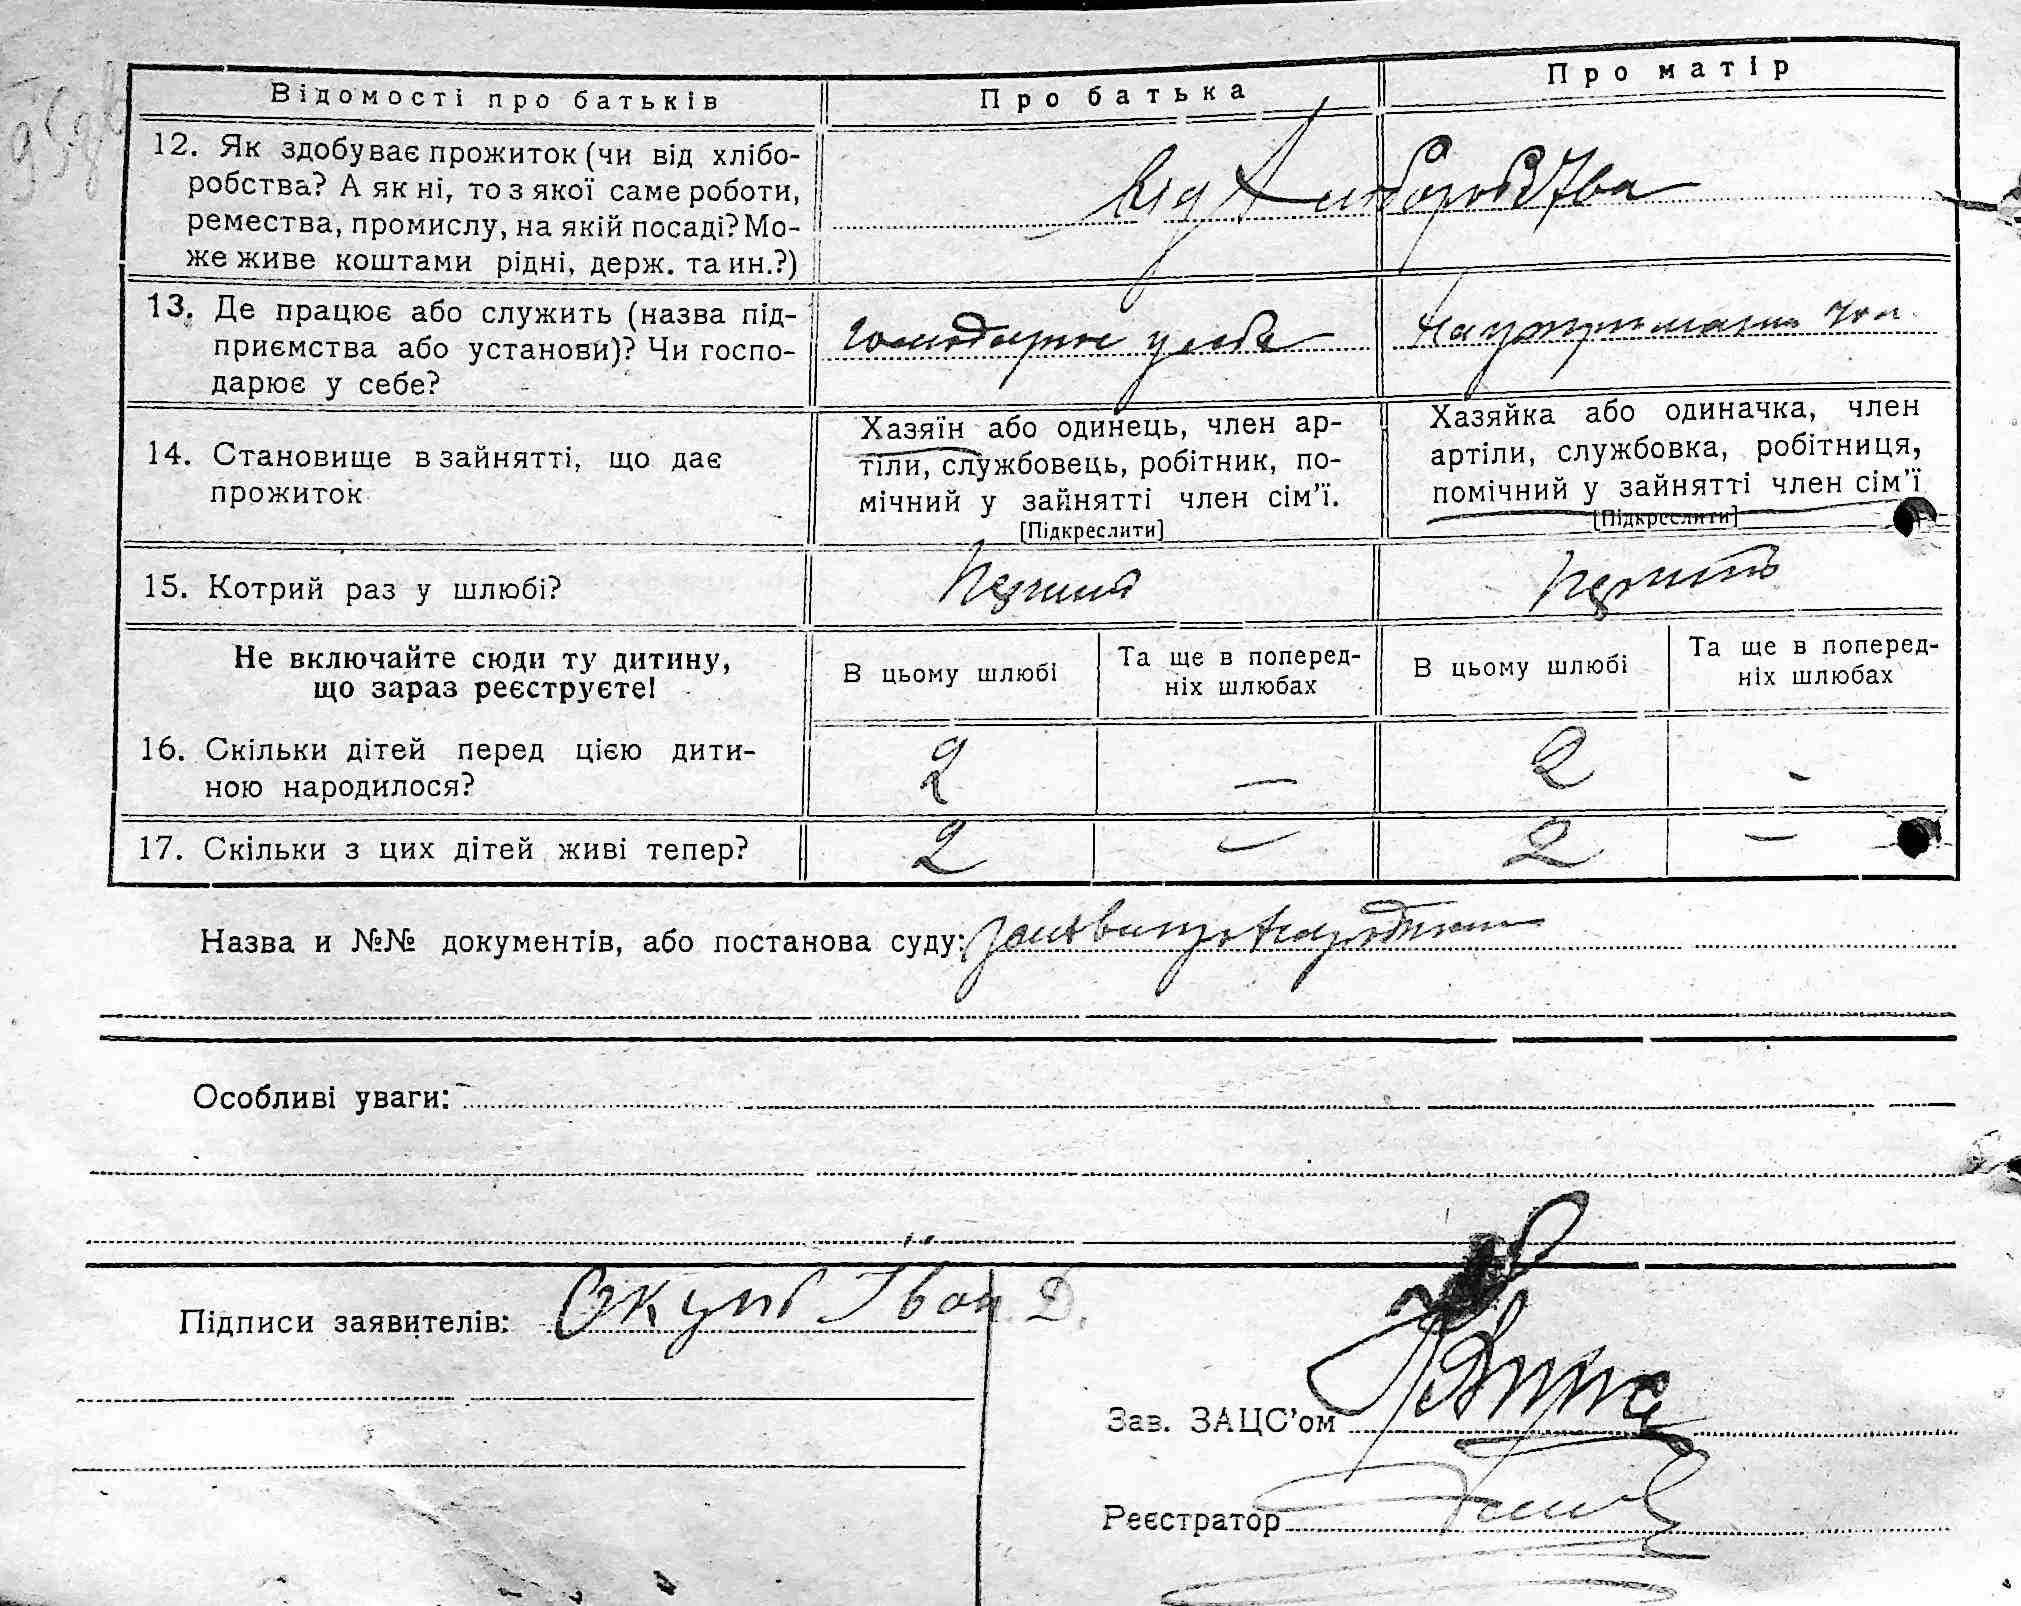 Відомості про батьків
Про батька
Про матір
12. Як здобуває прожиток (чи від хлібо-
робства? А як ні, то з якої саме роботи,
ремества, промислу, на якій посаді? Мо-
же живе коштами рідні, держ. та ин.?)
від хліборобства
13. Де працює або служить (назва під-
приємства або установи)? Чи госпо-
дарює у себе?
господарює у себе
На утриманні чол.
14. Становище в зайнятті, що дає
прожиток
Хазяїн або одинець, член ар-
тіли, службовець, робітник, по-
мічний у зайнятті член сім'ї.
[Підкреслити]
Хазяйка або одиначка, член
артіли, службовка, робітниця,
помічний у зайнятті член сім'ї
[Підкреслити]
15. Котрий раз у шлюбі?
Перший
Перший
Не включайте сюди ту дитину,
що зараз реєструєте!
В цьому шлюбі
Та ще в поперед-
ніх шлюбах
В цьому шлюбі
Та ще в поперед-
ніх шлюбах
16. Скільки дітей перед цією дити-
ною народилося?
2
—
2
-
17. Скільки з цих дітей живі тепер?
2
—
2
—
Назва и №№ документів, або постанова суду:
Особливі уваги:
Підписи заявителів: Окунь Іван Д.
Зав. ЗАЦС'ом
Реєстратор